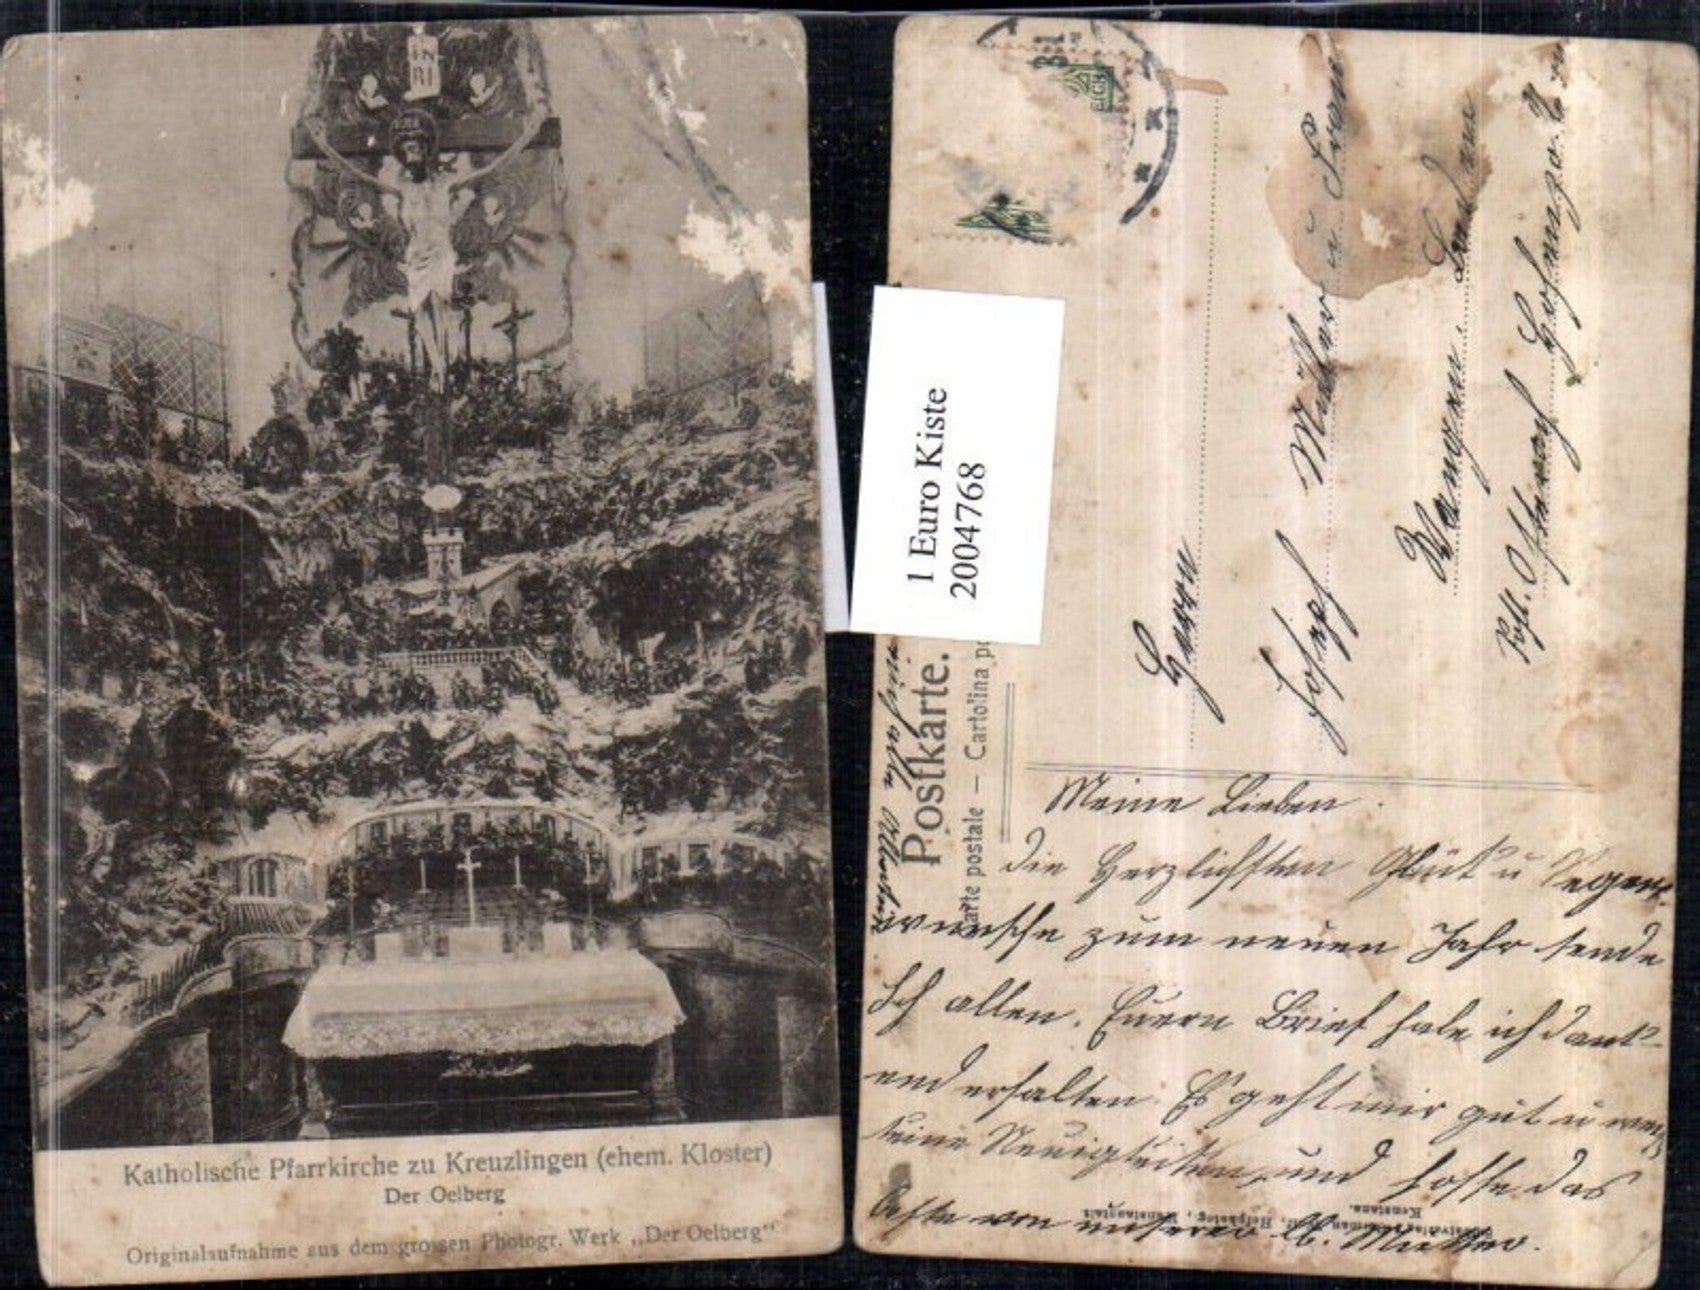 INRI
Katholische Pfarrkirche zu Kreuzlingen (ehem. Kloster)
Der Oelberg
Originalaufnahme aus dem grossen Photogr. Werk „Der Oelberg“
1 Euro Kiste
2004768
Postkarte.
Carte postale — Cartolina po
Herrn
Joseph Müller u Frau
Wangen.
Post. Ostrach Hohenzo.
Meine Lieben.
die Herzlichsten Glück u Segens
wünsche zum neuen Jahr sende
Ich allen. Euern Brief habe ich dank-
end erhalten. Es geht mir gut u
keine Neuigkeiten und hoffe das
beste von unserer lb. Mutter.
Konstanz.